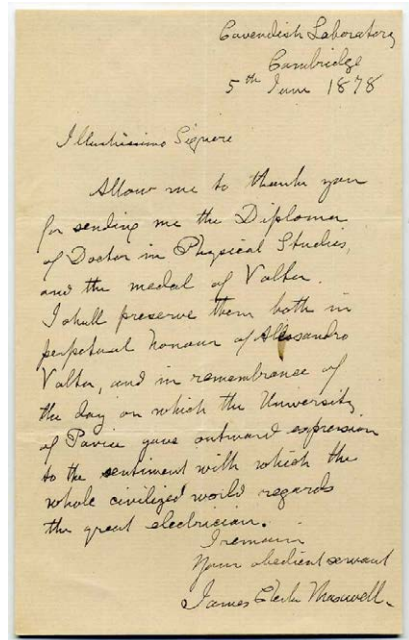 Cavendish Laboratory
Cambridge
5th June 1878
Illustrissimo Signore
Allow me to thank you
for sending me the Diploma
of Doctor in Physical Studies,
and the medal of Volta.
I shall preserve them both in
perpetual honour of Alessandro
Volta, and in remembrance of
the day on which the University
of Pavia gave outward expression
to the sentiment with which the
whole civilized world regards
the great electrician.
I remain
Your obedient servant
James Clerk Maxwell.